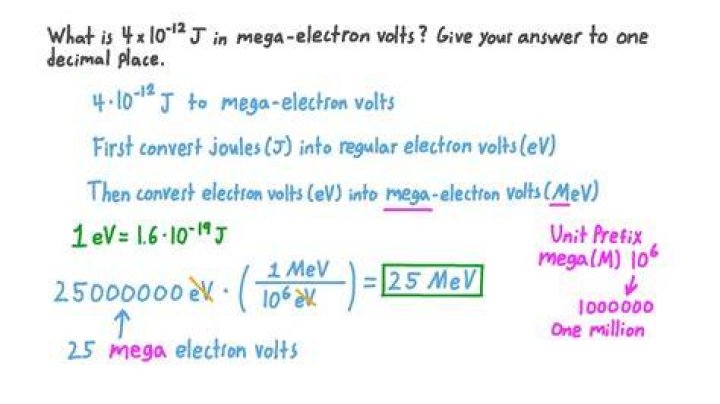 What is 4x10⁻¹² J in mega-electron volts? Give your answer to one
decimal place.
4·10⁻¹² J to mega-electron volts
First convert joules (J) into regular electron volts (eV)
Then convert electron volts (eV) into mega-electron volts (MeV)
1 eV = 1.6·10⁻¹⁹ J
25000000 eV · (1 MeV / 10⁶ eV) = 25 MeV
25 mega electron volts
Unit Prefix
mega (M) 10⁶
1000000
One million